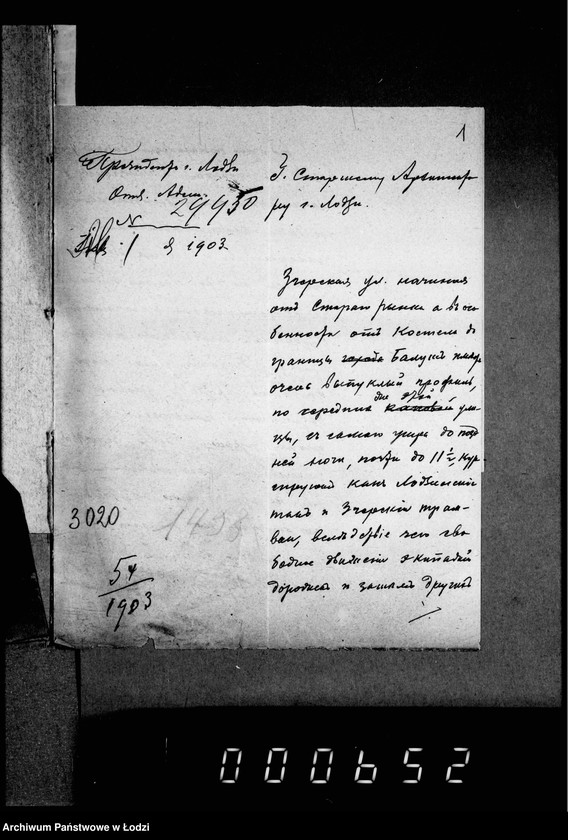 1
Президентъ г. Лодзи
Отд. Адм.
№ 29950
1 я 1903
Г. Старшему Архитекто
ру г. Лодзи.
Згерская ул. начиная
отъ Стараго рынка а въ осо
бенности отъ Костела до
границы города Балутъ имѣетъ
очень выпуклый профиль,
по середине этой ули-
цы, съ самаго утра до позд
ней ночи, почти до 11 1/2, кур
сируютъ какъ Лодзинскіе
такъ и Згерскіе трам-
ваи, вслѣдствіе чего сво
бодное движеніе экипажей
дорожекъ и другихъ
3020
1498
54
1903
000652
Archiwum Państwowe w Łodzi